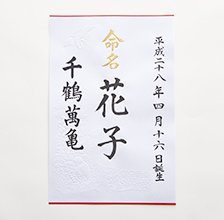 平成二十八年四月十六日誕生
命名
花子
千鶴萬亀